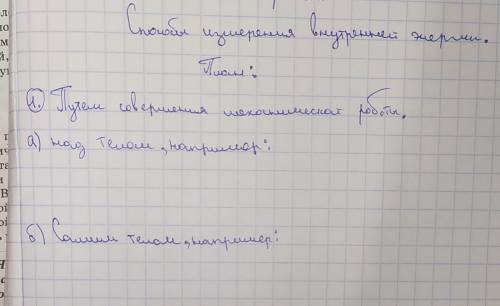 Способы измерения внутренней энергии.
План:
1. Путем совершения механическая работы.
а) над телом, например:
б) Самим телом, например: